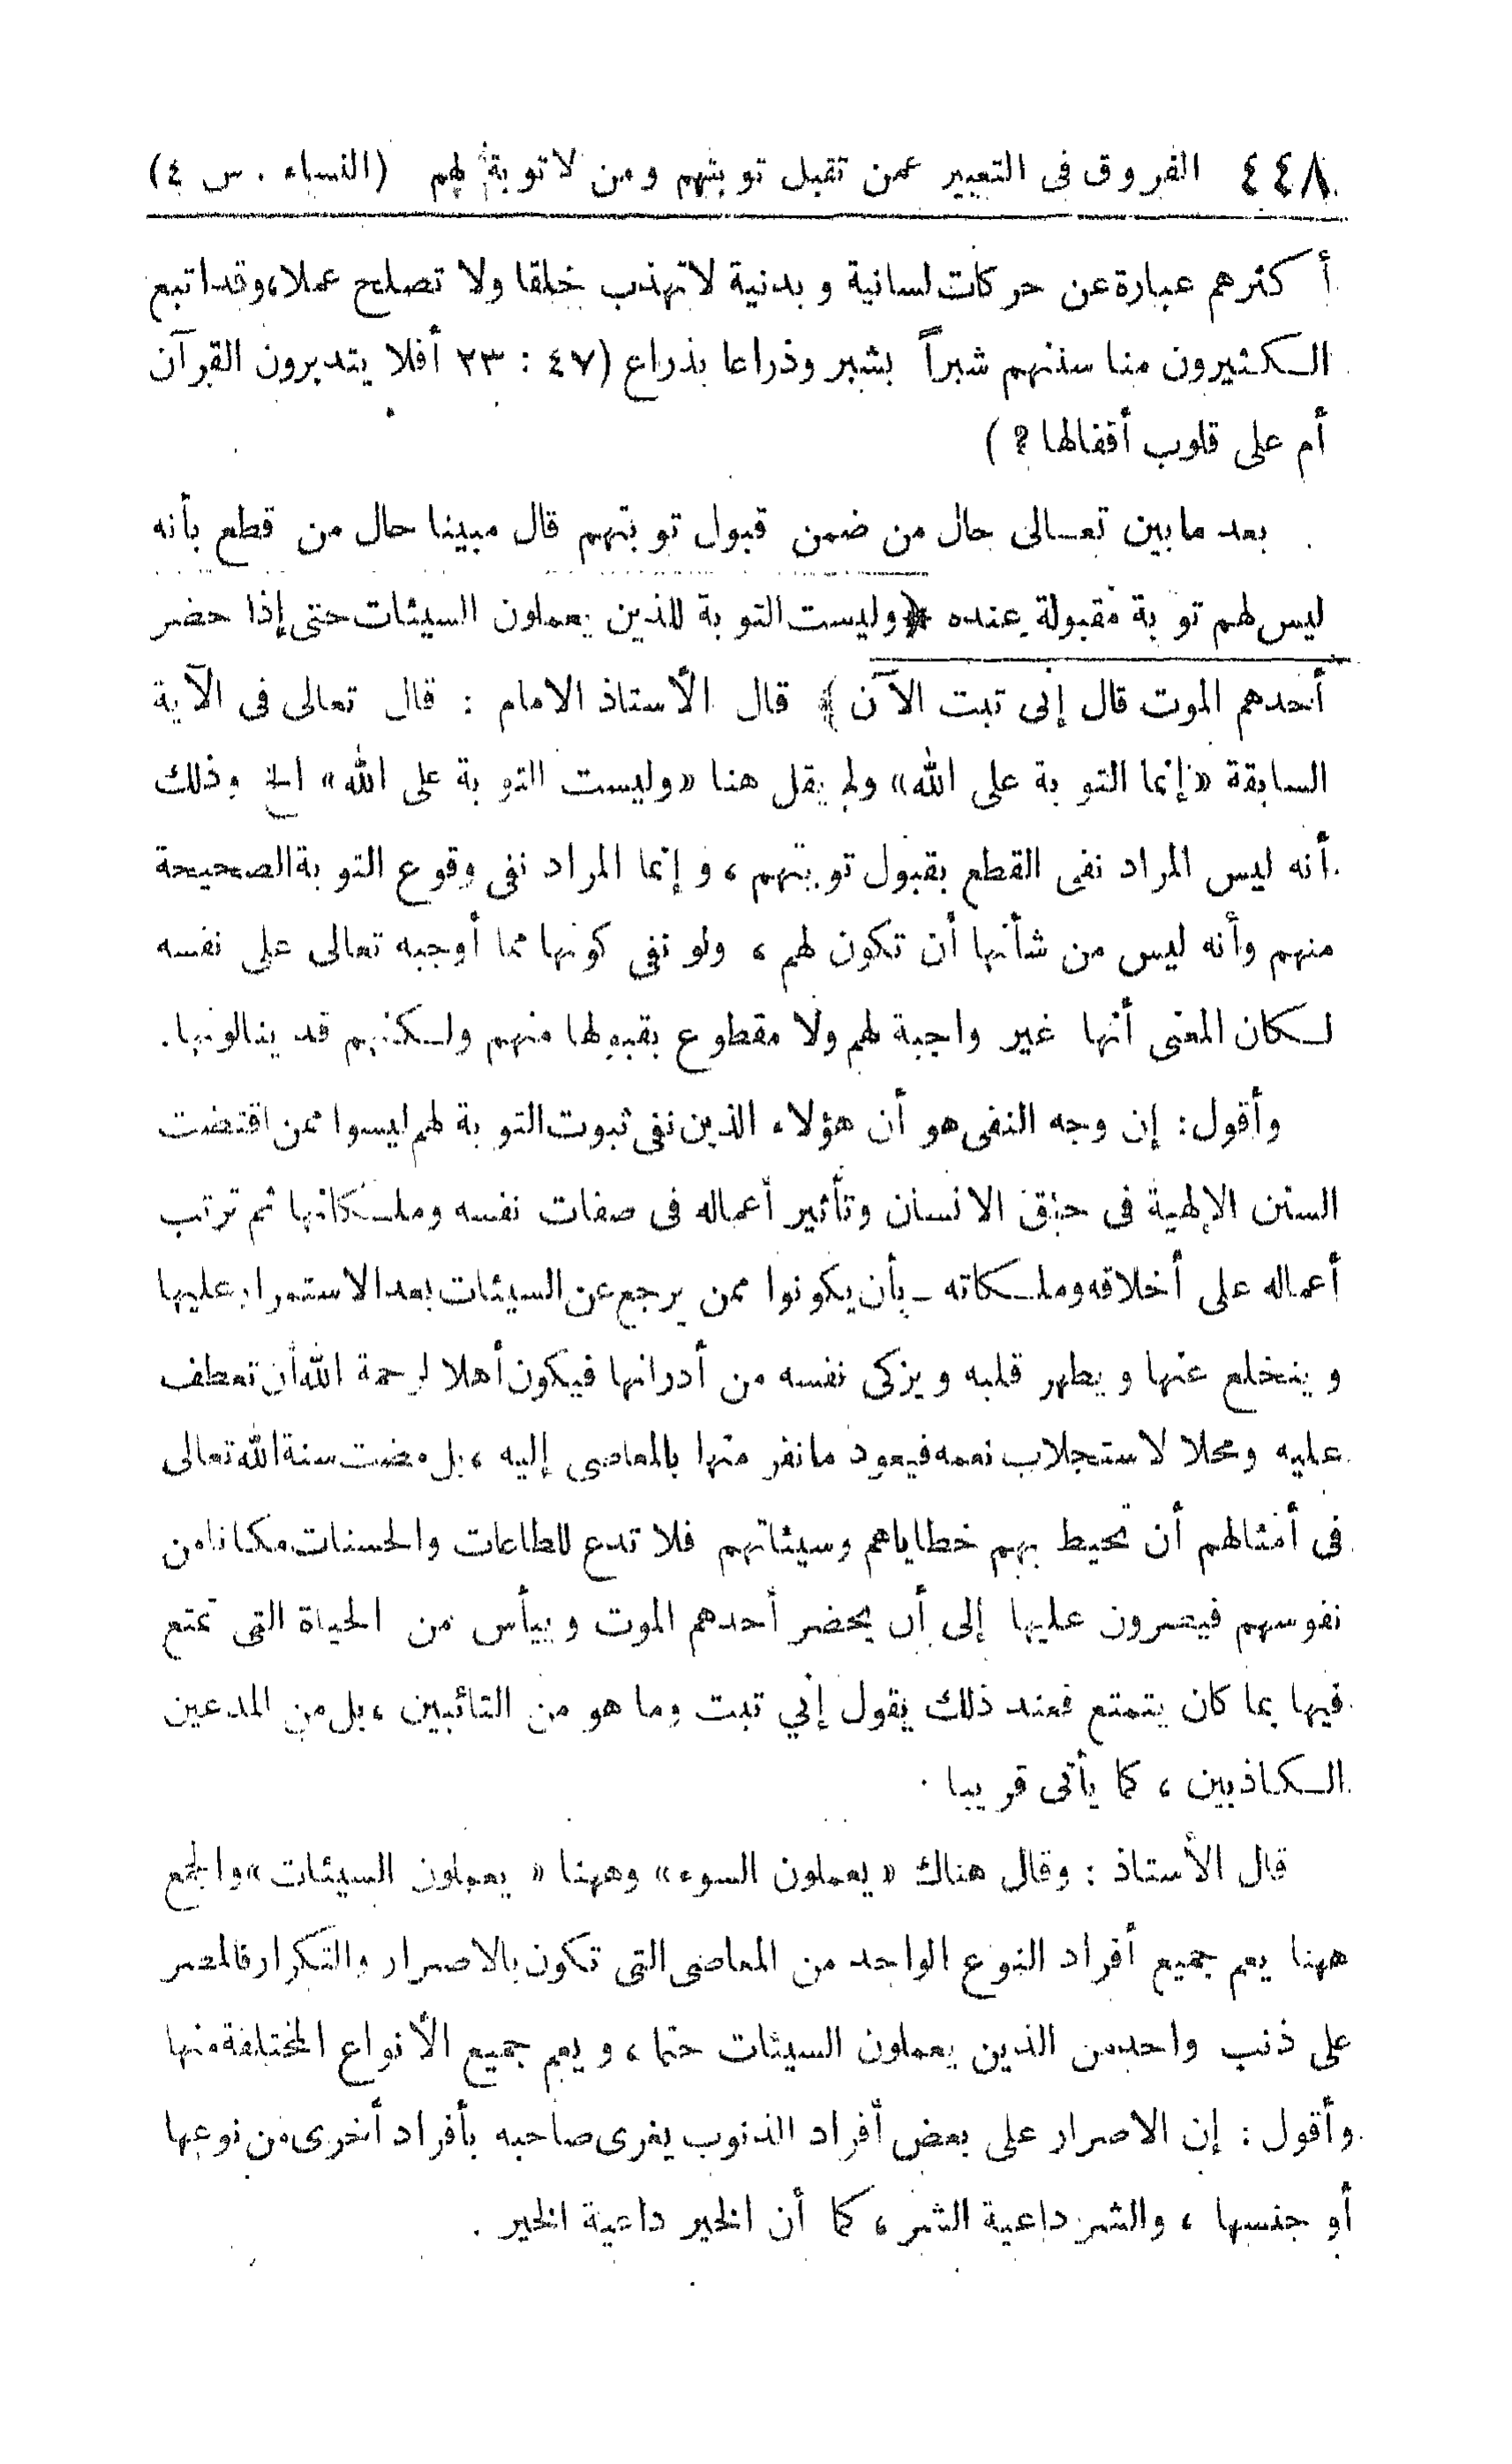 ٤٤٨ الفروق فى التعبير عمن تقبل توبتهم ومن لا توبة لهم (النساء . س ٤)
أكثرهم عبارة عن حركات لسانية وبدنية لا تهذب خلقا ولا تصلح عملا، وقد اتبع
الكثيرون منا سننهم شبراً بشبر وذراعا بذراع (٤٧ : ٢٣ أفلا يتدبرون القرآن
أم على قلوب أقفالها ؟ )
بعد ما بين تعالى حال من ضمن قبول توبتهم قال مبينا حال من قطع بأنه
ليس لهم توبة مقبولة عنده ﴿وليست التوبة للذين يعملون السيئات حتى إذا حضر
أحدهم الموت قال إنى تبت الآن ﴾ قال الأستاذ الامام : قال تعالى فى الآية
السابقة «إنما التوبة على الله» ولم يقل هنا «وليست التوبة على الله» الخ وذلك
أنه ليس المراد نفى القطع بقبول توبتهم ، وإنما المراد نفى وقوع التوبة الصحيحة
منهم وأنه ليس من شأنها أن تكون لهم ، ولو نفى كونها مما أوجبه تعالى على نفسه
لكان المعنى أنها غير واجبة لهم ولا مقطوع بقبولها منهم ولكنهم قد ينالونها .
وأقول : إن وجه النفى هو أن هؤلاء الذين نفى ثبوت التوبة لهم ليسوا ممن اقتضت
السنن الإلهية فى خلق الانسان وتأثير أعماله فى صفات نفسه وملكاتها ثم ترتب
أعماله على أخلاقه وملكاته ــ بأن يكونوا ممن يرجع عن السيئات بعد الاستمرار عليها
وينخلع عنها ويطهر قلبه ويزكى نفسه من أدرانها فيكون أهلا لرحمة الله أن تعطف
عليه ومحلا لاستجلاب نعمه فيعود ما نفر منها بالمعاصى إليه ، بل مضت سنة الله تعالى
فى أمثالهم أن تحيط بهم خطاياهم وسيئاتهم فلا تدع للطاعات والحسنات مكانا من
نفوسهم فيصرون عليها إلى أن يحضر أحدهم الموت وييأس من الحياة التى تمتع
فيها بما كان يتمتع فعند ذلك يقول إني تبت وما هو من التائبين ، بل من المدعين
الكاذبين ، كما يأتى قريبا .
قال الأستاذ : وقال هناك «يعملون السوء» وههنا « يعملون السيئات» والجمع
ههنا يعم جميع أفراد النوع الواحد من المعاصى التى تكون بالاصرار والتكرار فالمصر
على ذنب واحد من الذين يعملون السيئات حتما ، ويعم جميع الأنواع المختلفة منها
وأقول : إن الاصرار على بعض أفراد الذنوب يغرى صاحبه بأفراد أخرى من نوعها
أو جنسها ، والشر داعية الشر ، كما أن الخير داعية الخير .